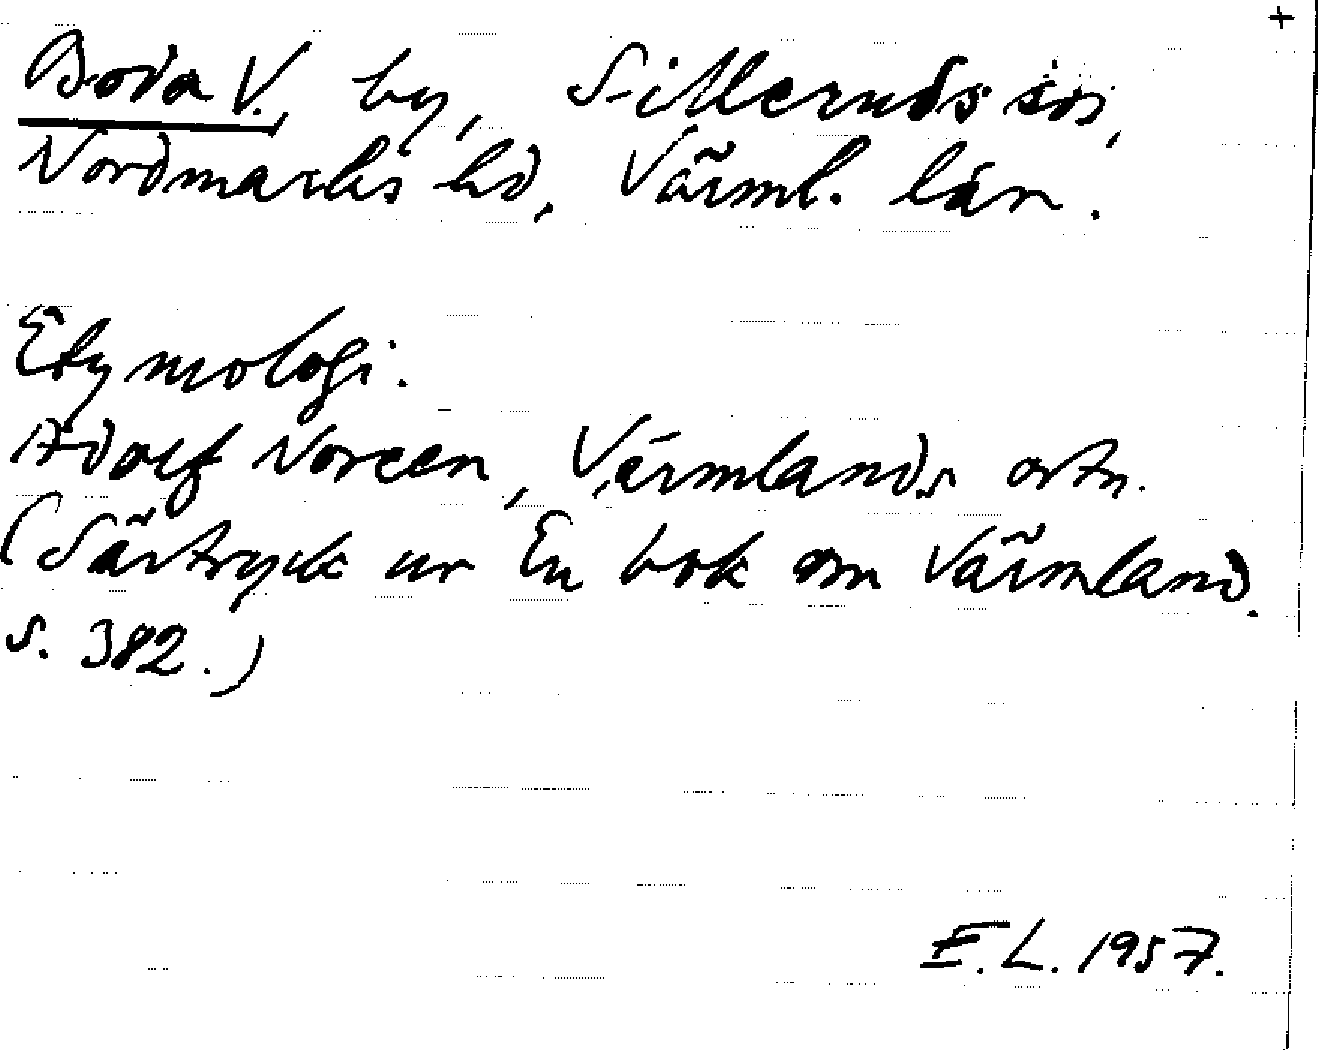 +
Boda V., by, Silleruds sn,
Nordmarks hd, Värml. län.
Etymologi.
Adolf Noreen, Värmlands ortn.
(Särtryck ur En bok om Värmland.
s. 382.)
E.L. 1957.